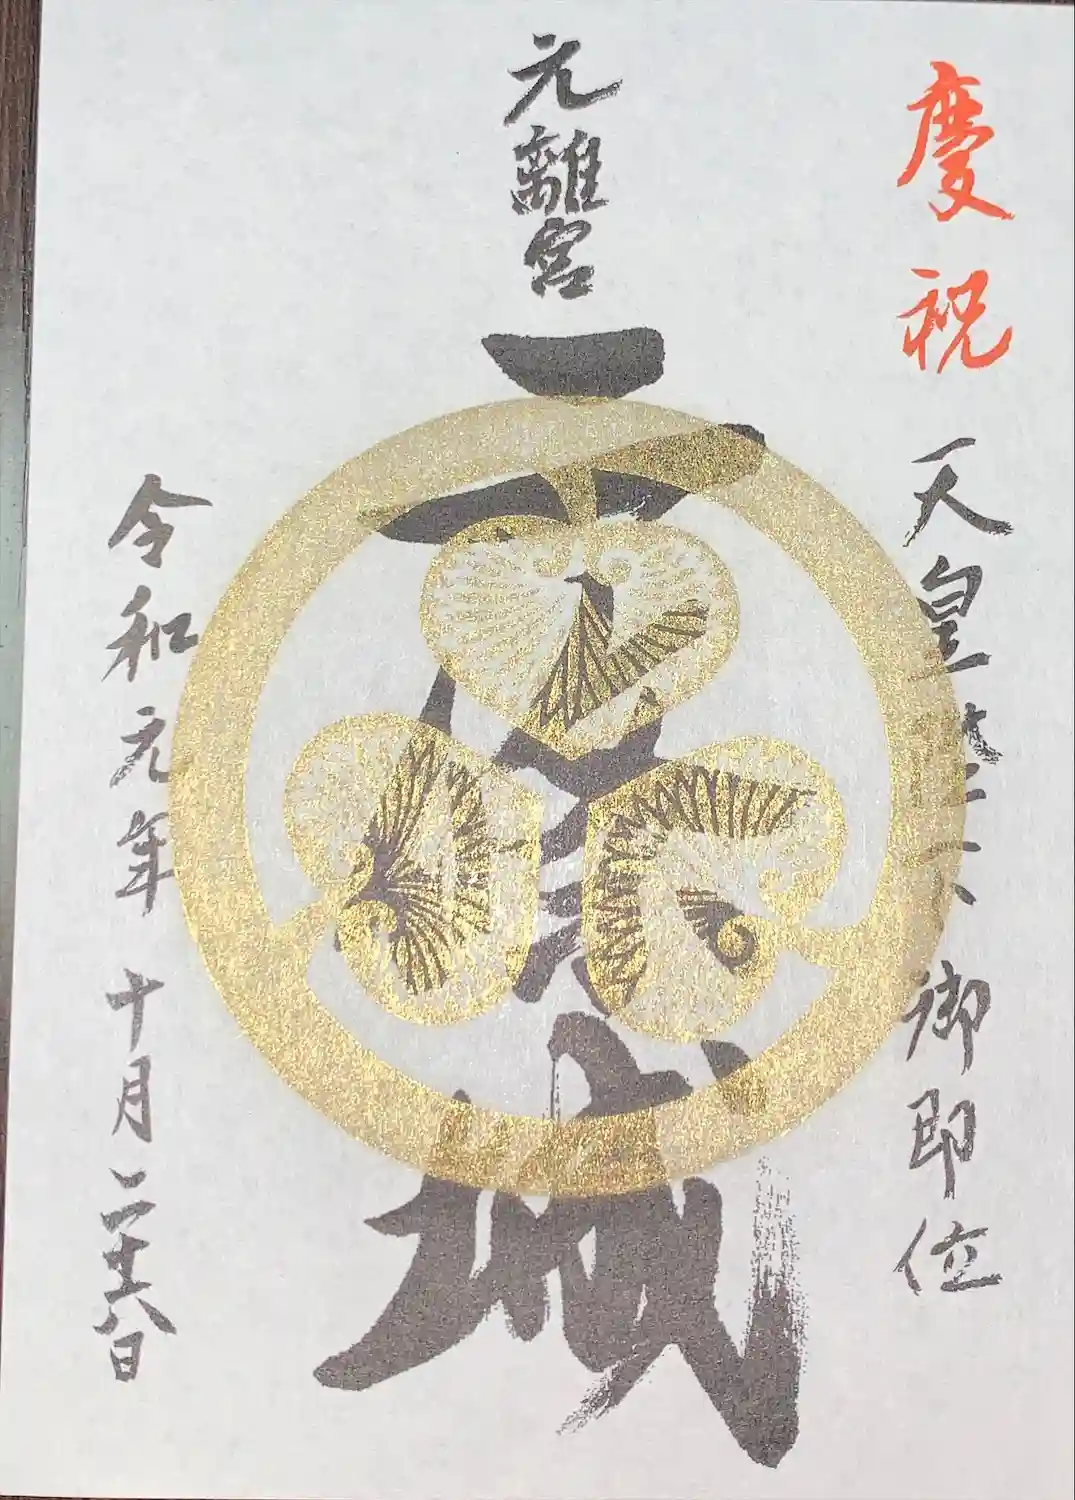 慶祝 天皇陛下 御即位
元離宮
二条城
令和元年 十月二十八日